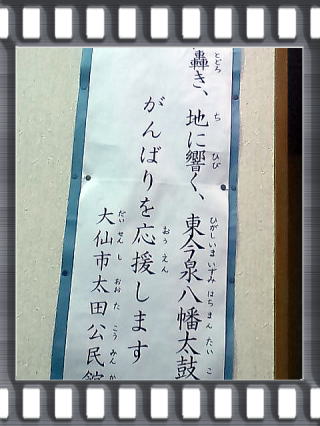 轟き、地に響く、東今泉八幡太鼓
とどろ ち ひび ひがしいまいずみ はちまん たいこ
がんばりを応援します
おうえん
大仙市太田公民館
だいせんし おおた こうみんか